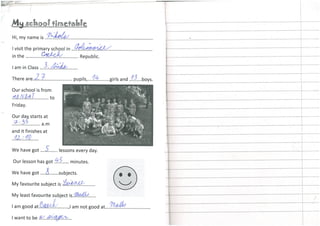 My school timetable
Hi, my name is Nikola
I visit the primary school in
in the Czech Republic.
I am in Class
There are 27 pupils, 14 girls and 13 boys.
Our school is from
to
Friday.
Our day starts at
7:55 a.m
and it finishes at
We have got 5 lessons every day.
Our lesson has got 45 minutes.
We have got 8 subjects.
My favourite subject is Science
My least favourite subject is
I am good at Czech, I am not good at Maths
I want to be